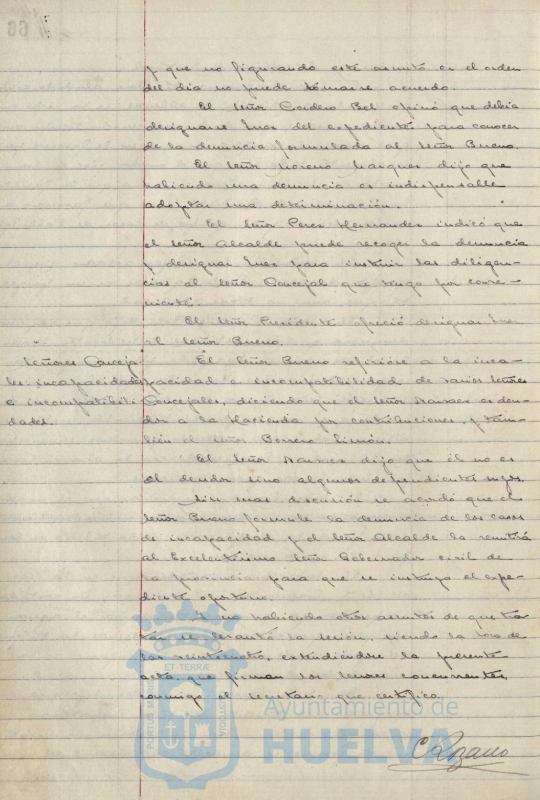 y que no figurando este asunto en el orden
del dia no puede tomarse acuerdo.
El Señor Cordero Bel opinó que debia
designarse Juez del expediente para conocer
de la denuncia formulada al Señor Bueno.
El Señor Moreno Marquez dijo que
habiendo una denuncia es indispensable
adoptar una determinación.
El Señor Perez Hernandez indicó que
el Señor Alcalde puede recoger la denuncia
y designar Juez para instruir las diligen-
cias al Señor Concejal que tenga por conve-
niente.
El Señor Presidente ofreció designar Juez
al Señor Bueno.
Señores Conceja-
les. incapacidades
e incompatibili-
dades.
El Señor Bueno refirióse a la inca-
pacidad e incompatibilidad de varios Señores
Concejales, diciendo que el Señor Narvaez es deu-
dor a la Hacienda por contribuciones, y tam-
bién el Señor Borrero Limón.
El Señor Narvaez dijo que él no es
el deudor sino algunos dependientes suyos.
Sin mas discusión se acordó que el
Señor Bueno formule la denuncia de los casos
de incapacidad y el Señor Alcalde la remitirá
al Excelentísimo Señor Gobernador civil de
la provincia para que se instruya el expe-
diente oportuno.
Y no habiendo otros asuntos de que tra-
tar se levantó la sesión, siendo la hora de
las veinticuatro, extendiéndose la presente
acta, que firman los Señores concurrentes,
conmigo el Secretario que certifico.
C Lozano
PORTUS MARIS
ET TERRÆ
CUSTODIA
Ayuntamiento de
HUELVA
66